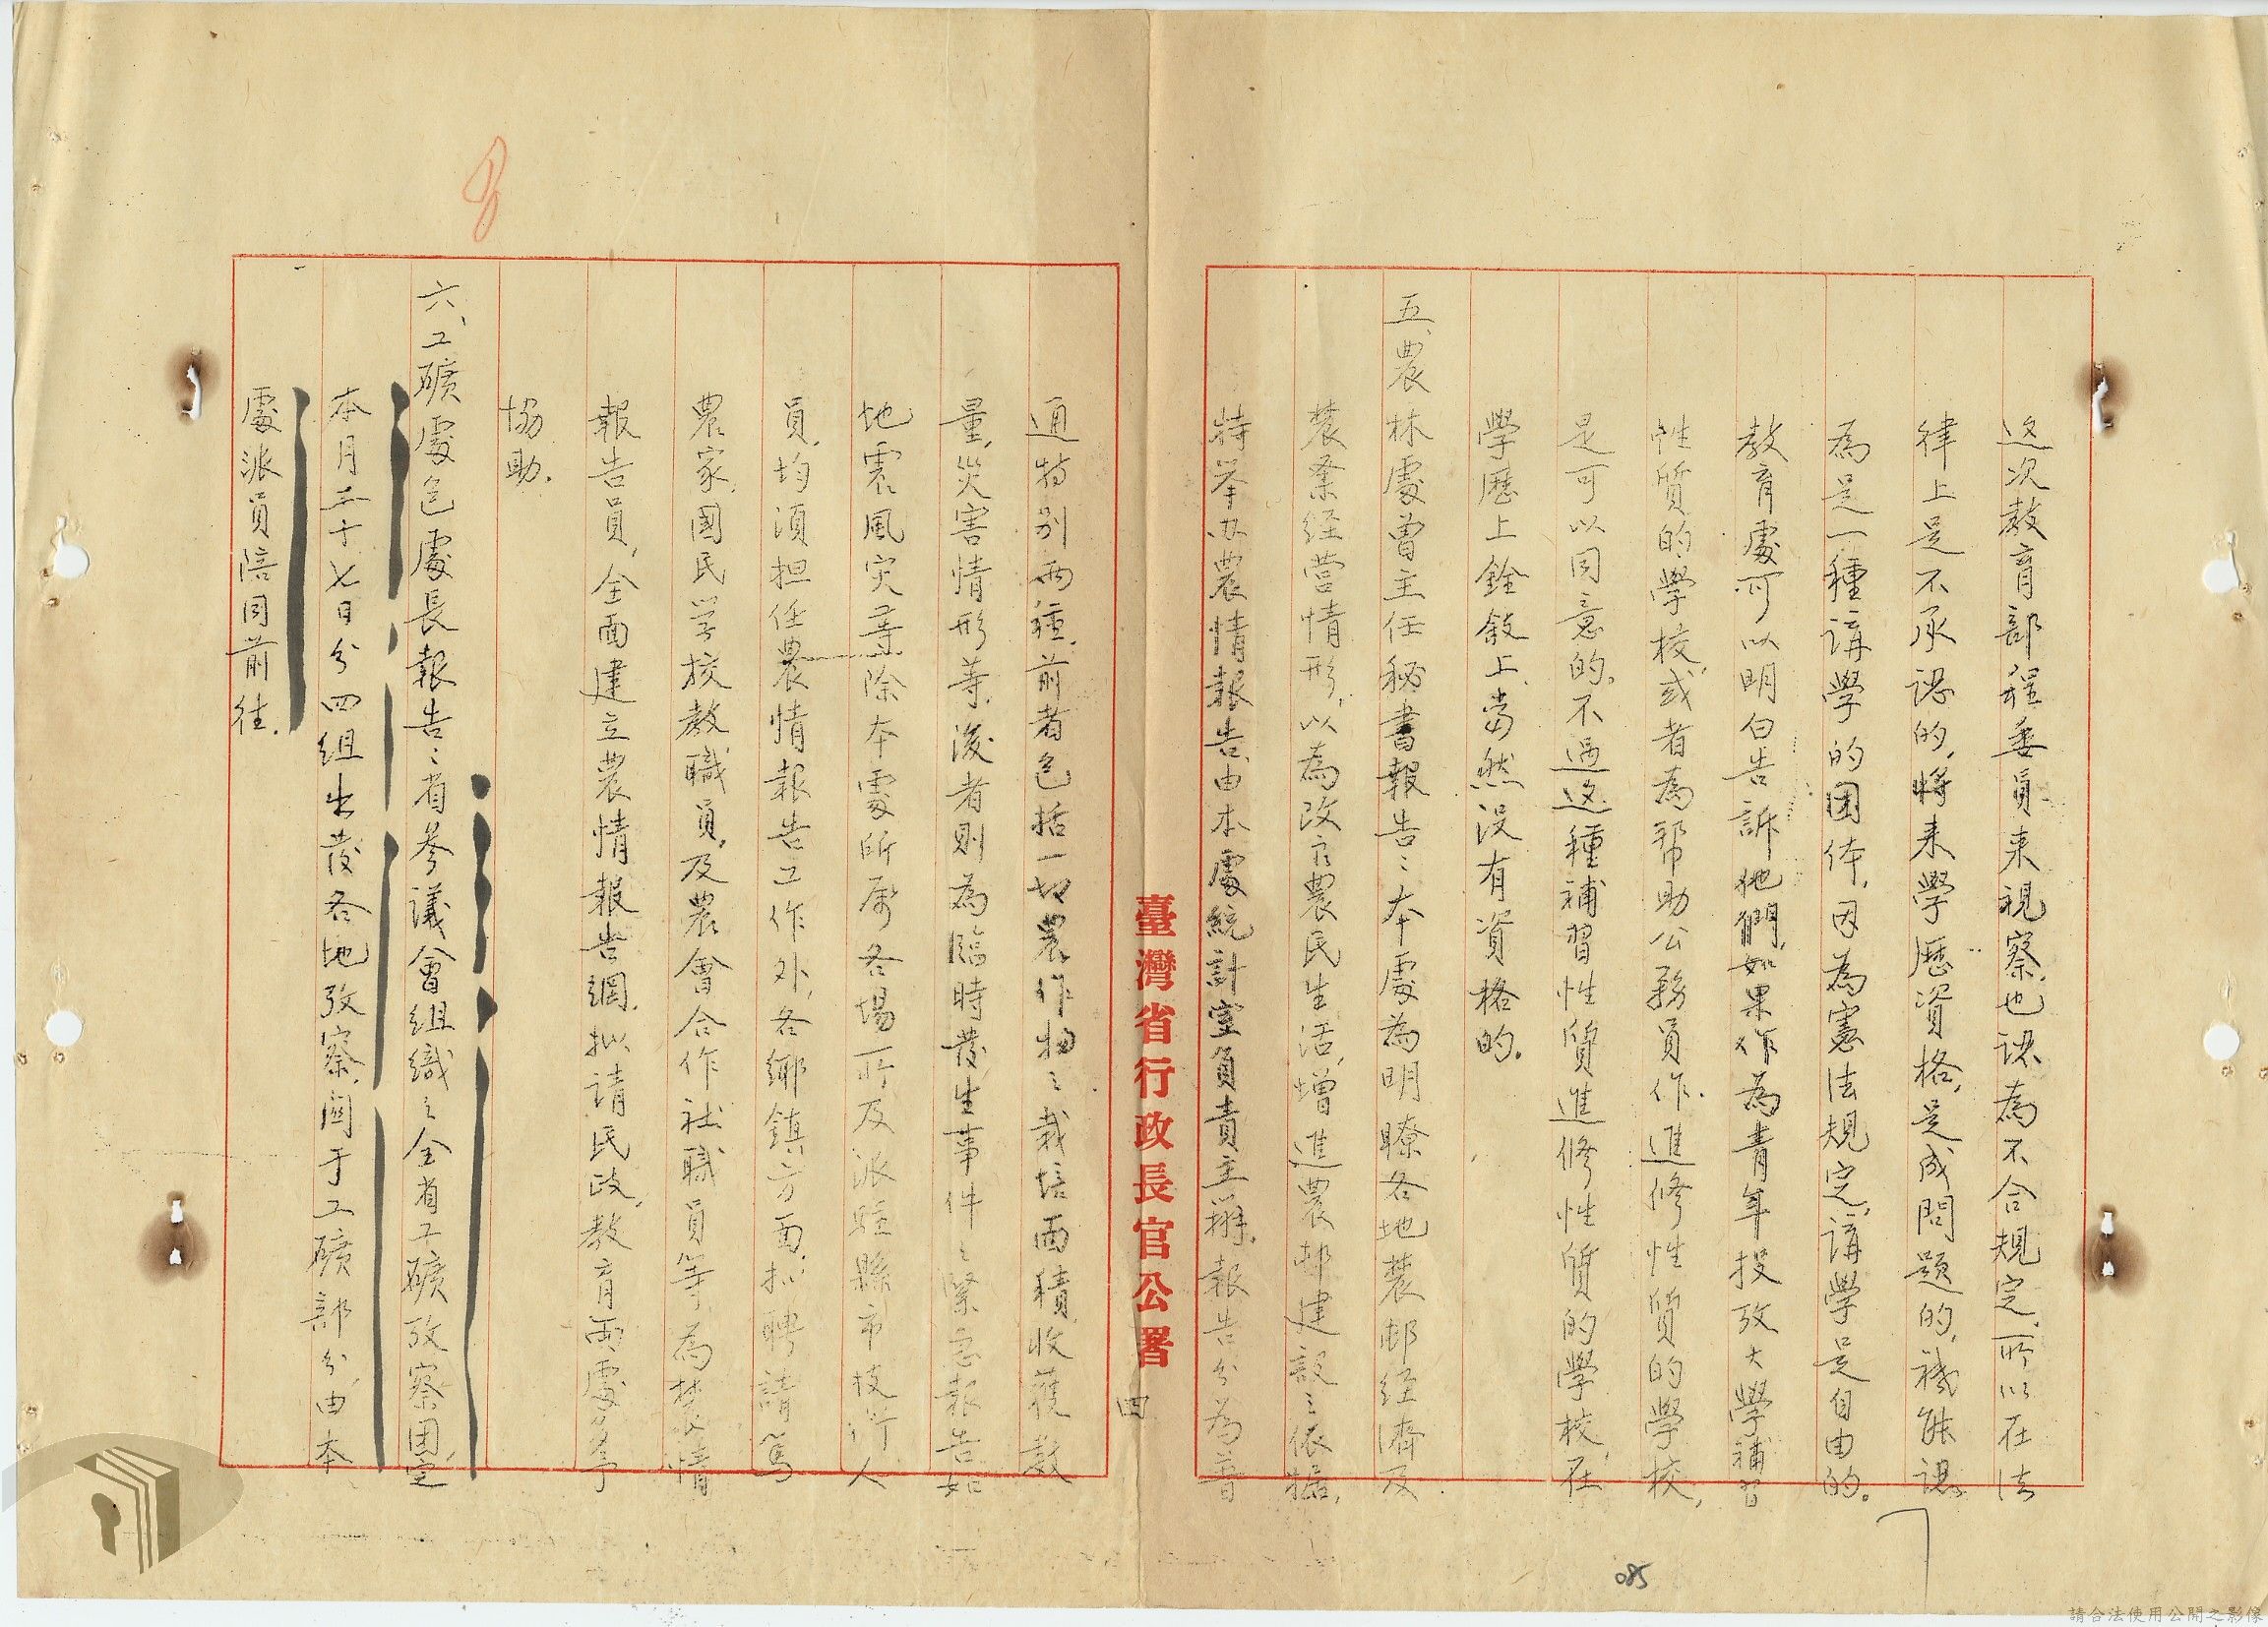 這次教育部程委員来視察,也認為不合規定,所以在法
律上是不承認的,將来學歷資格,是成問題的,祗能認
為是一種講學的团体,因為憲法規定,講學是自由的。
教育處可以明白告訴他們,如果作為青年投攷大學補習
性質的學校,或者為帮助公務員作進修性質的學校,
是可以同意的。不過這種補習性質進修性質的學校,在
學歷上銓敘上,當然没有資格的。
五、農林處曾主任秘書報告:本處為明瞭各地農邨經濟及
農業經营情形,以為改良農民生活,增進農邨建設之依據,
特举办農情報告,由本處統計室負責主辦。報告分為普
臺灣省行政長官公署
四
通特别両種,前者包括一切農作物之栽培面積,收穫数
量,災害情形等,後者則為臨時發生事件之緊急報告如
地震風灾等,除本處所属各場所及派駐縣市技術人
員,均須担任農情報告工作外,各鄉鎮方面,拟聘請篤
農家,國民学校教職員,及農會合作社職員等,為農情
報告員,全面建立農情報告網,拟請民政,教育両處多予
協助。
六、工礦處包處長報告:省參議會組織之全省工礦攷察团,定
本月二十七日分四组出發各地攷察,関于工礦部分,由本
處派員陪同前往。
085
請合法使用公開之影像